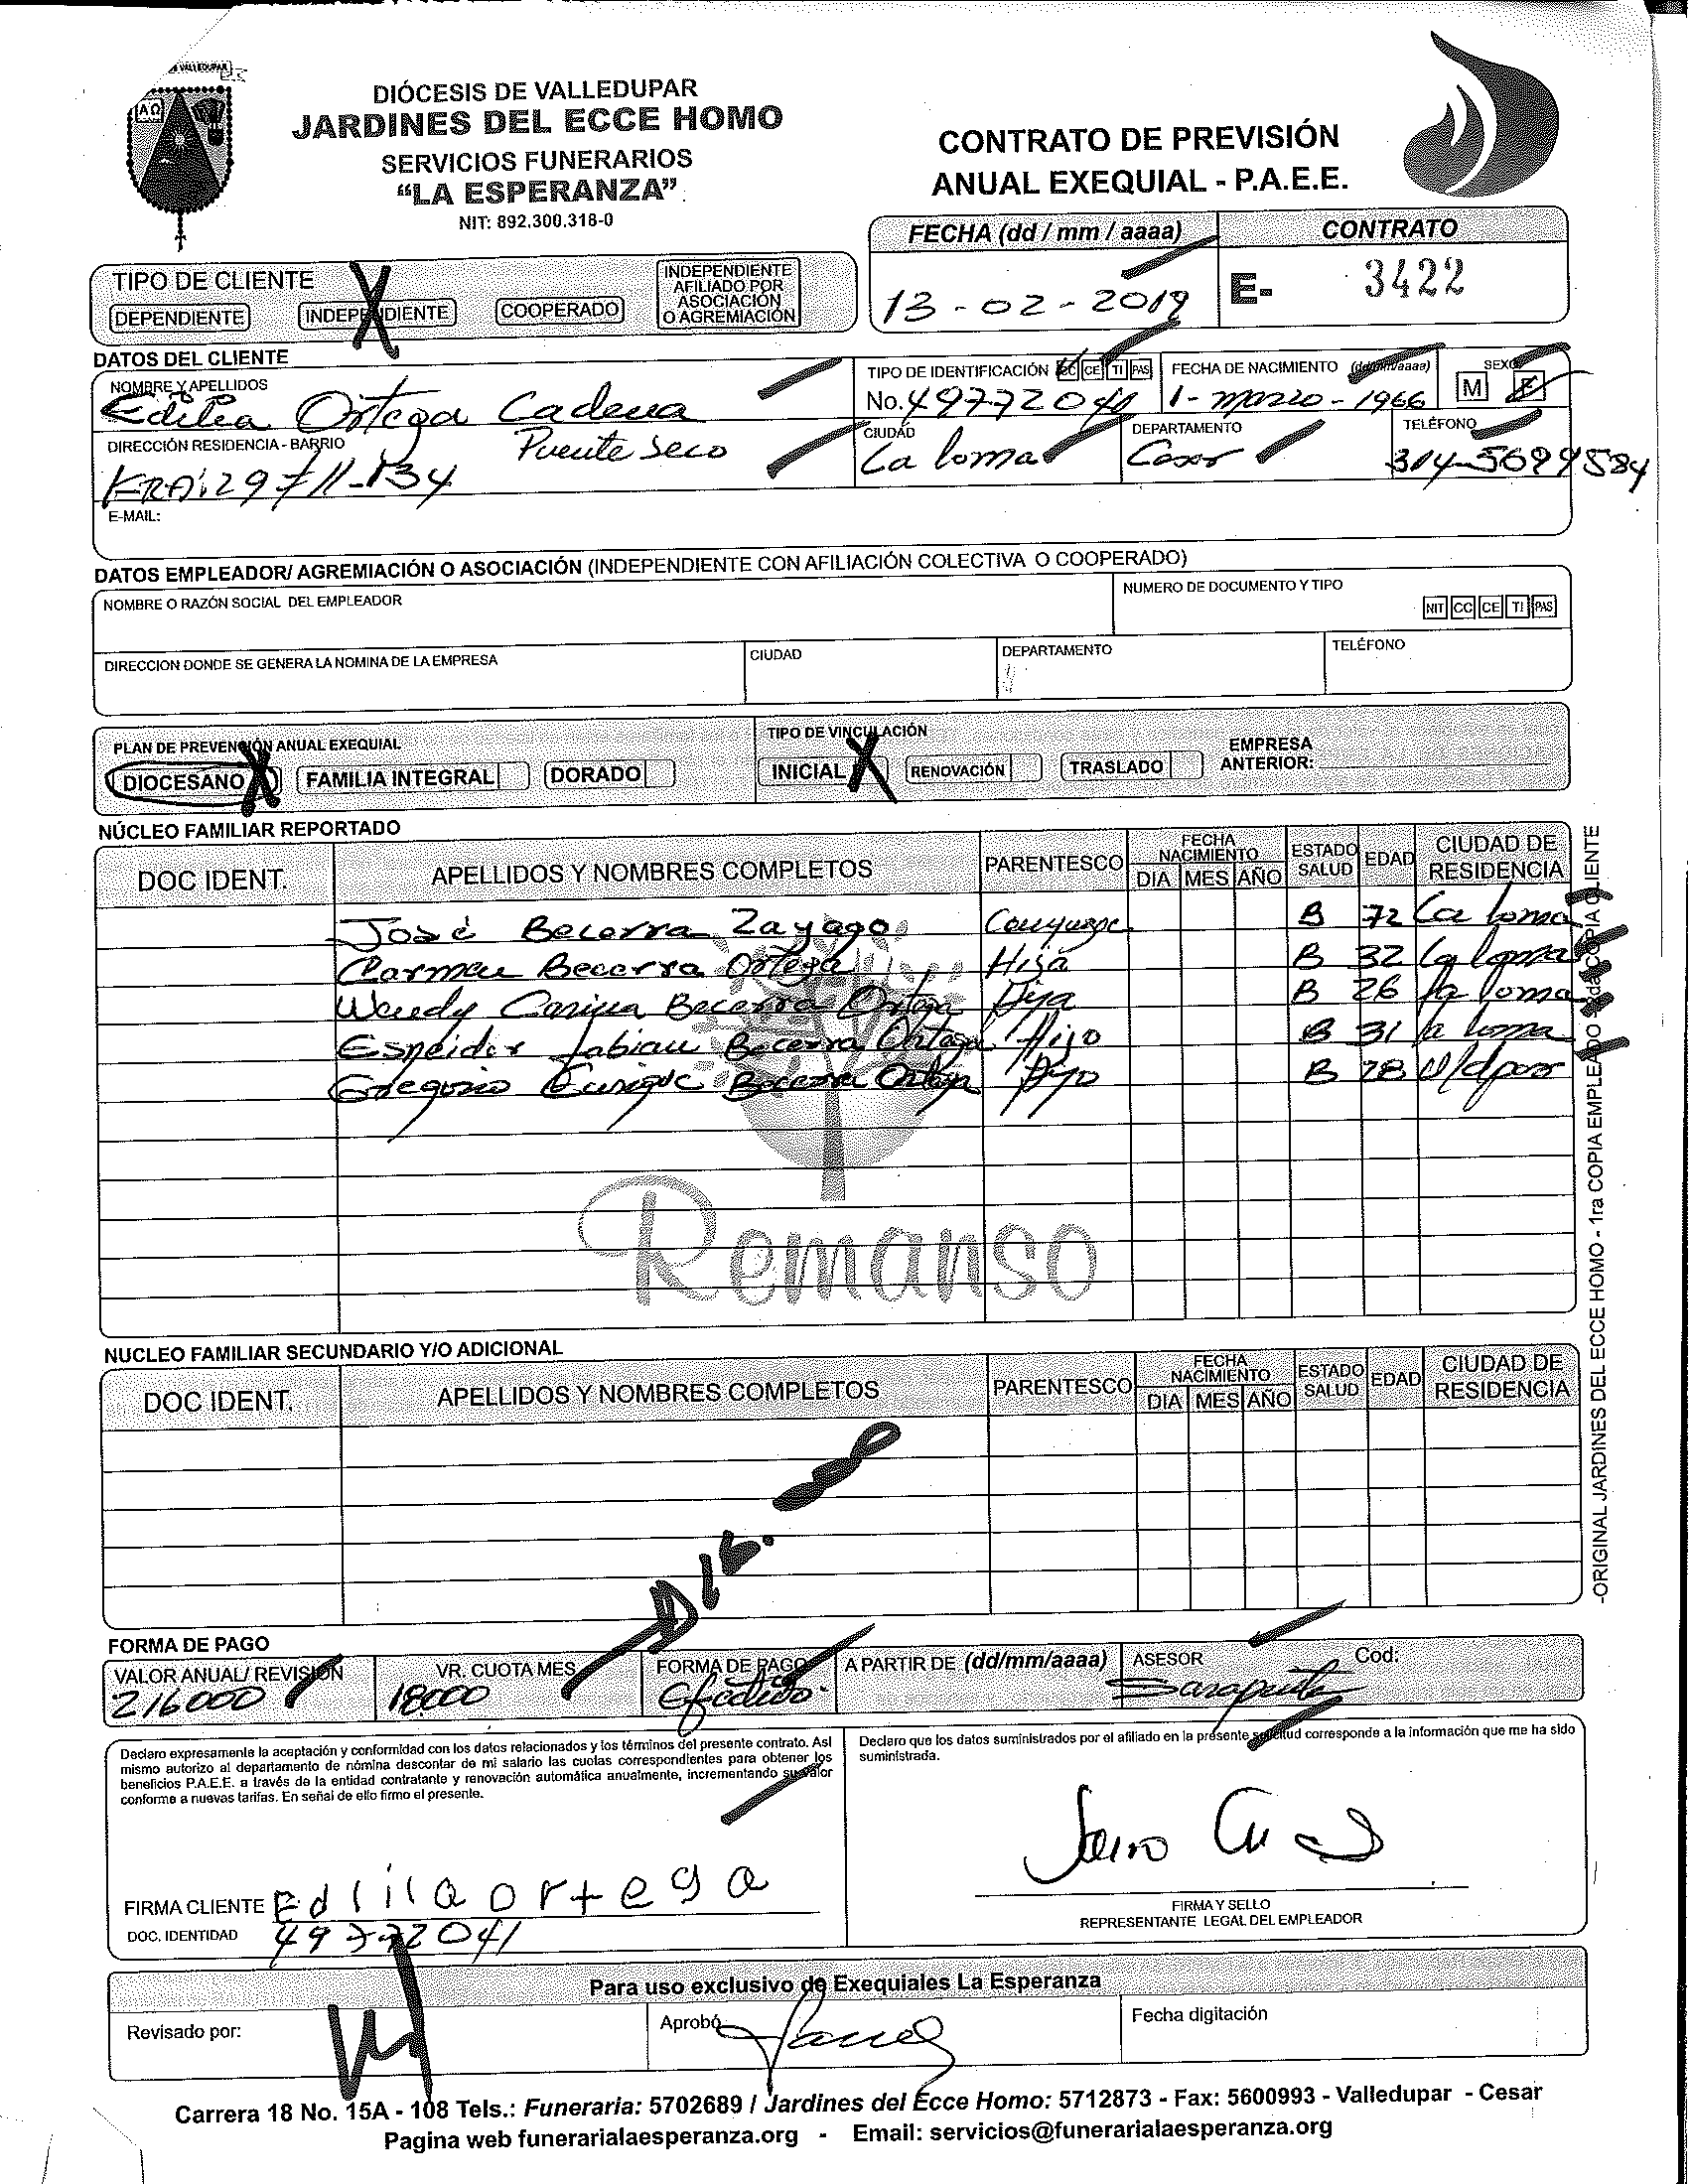 DIÓCESIS DE VALLEDUPAR
JARDINES DEL ECCE HOMO
SERVICIOS FUNERARIOS
“LA ESPERANZA”
NIT: 892.300.318-0
CONTRATO DE PREVISIÓN
ANUAL EXEQUIAL - P.A.E.E.
FECHA (dd / mm / aaaa) CONTRATO
13-02-2019 E- 3422
TIPO DE CLIENTE
DEPENDIENTE INDEPENDIENTE COOPERADO INDEPENDIENTE AFILIADO POR ASOCIACIÓN O AGREMIACIÓN
DATOS DEL CLIENTE
NOMBRE Y APELLIDOS TIPO DE IDENTIFICACIÓN CC CE TI PAS FECHA DE NACIMIENTO (dd/mm/aaaa) SEXO
Edilia Ortega Cadena No. 49772041 1-marzo-1966 M F
DIRECCIÓN RESIDENCIA - BARRIO CIUDAD DEPARTAMENTO TELÉFONO
KRA:29 # 11-134 Puente Seco La loma Cesar 314-5699584
E-MAIL:
DATOS EMPLEADOR/ AGREMIACIÓN O ASOCIACIÓN (INDEPENDIENTE CON AFILIACIÓN COLECTIVA O COOPERADO)
NOMBRE O RAZÓN SOCIAL DEL EMPLEADOR NUMERO DE DOCUMENTO Y TIPO NIT CC CE TI PAS
DIRECCION DONDE SE GENERA LA NOMINA DE LA EMPRESA CIUDAD DEPARTAMENTO TELÉFONO
PLAN DE PREVENCIÓN ANUAL EXEQUIAL TIPO DE VINCULACIÓN EMPRESA
DIOCESANO X FAMILIA INTEGRAL DORADO INICIAL X RENOVACIÓN TRASLADO ANTERIOR:
NÚCLEO FAMILIAR REPORTADO
DOC IDENT. APELLIDOS Y NOMBRES COMPLETOS PARENTESCO FECHA NACIMIENTO DIA MES AÑO ESTADO SALUD EDAD CIUDAD DE RESIDENCIA
José Becerra Zayago Conyuge B 72 La loma
Carmen Becerra Ortega Hija B 32 La loma
Wendy Carina Becerra Ortega Hija B 26 la loma
Esneider fabian Becerra Ortega Hijo B 31 la loma
Gregorio Enrique Becerra Ortega Hijo B 28 V/dpar
Remanso
NUCLEO FAMILIAR SECUNDARIO Y/O ADICIONAL
DOC IDENT. APELLIDOS Y NOMBRES COMPLETOS PARENTESCO FECHA NACIMIENTO DIA MES AÑO ESTADO SALUD EDAD CIUDAD DE RESIDENCIA
FORMA DE PAGO
VALOR ANUAL/ REVISIÓN VR. CUOTA MES FORMA DE PAGO A PARTIR DE (dd/mm/aaaa) ASESOR Cod:
216000 18000 Efectivo.
Declaro expresamente la aceptación y conformidad con los datos relacionados y los términos del presente contrato. Así
mismo autorizo al departamento de nómina descontar de mi salario las cuotas correspondientes para obtener los
beneficios P.A.E.E. a través de la entidad contratante y renovación automática anualmente, incrementando su valor
conforme a nuevas tarifas. En señal de ello firmo el presente.
Declaro que los datos suministrados por el afiliado en la presente solicitud corresponde a la información que me ha sido
suministrada.
FIRMA CLIENTE Edilia ortega
DOC. IDENTIDAD 49772041
FIRMA Y SELLO
REPRESENTANTE LEGAL DEL EMPLEADOR
Para uso exclusivo de Exequiales La Esperanza
Revisado por: Aprobó: Fecha digitación
Carrera 18 No. 15A - 108 Tels.: Funeraria: 5702689 / Jardines del Ecce Homo: 5712873 - Fax: 5600993 - Valledupar - Cesar
Pagina web funerarialaesperanza.org - Email: servicios@funerarialaesperanza.org
-ORIGINAL JARDINES DEL ECCE HOMO - 1ra COPIA EMPLEADO 2da COPIA CLIENTE